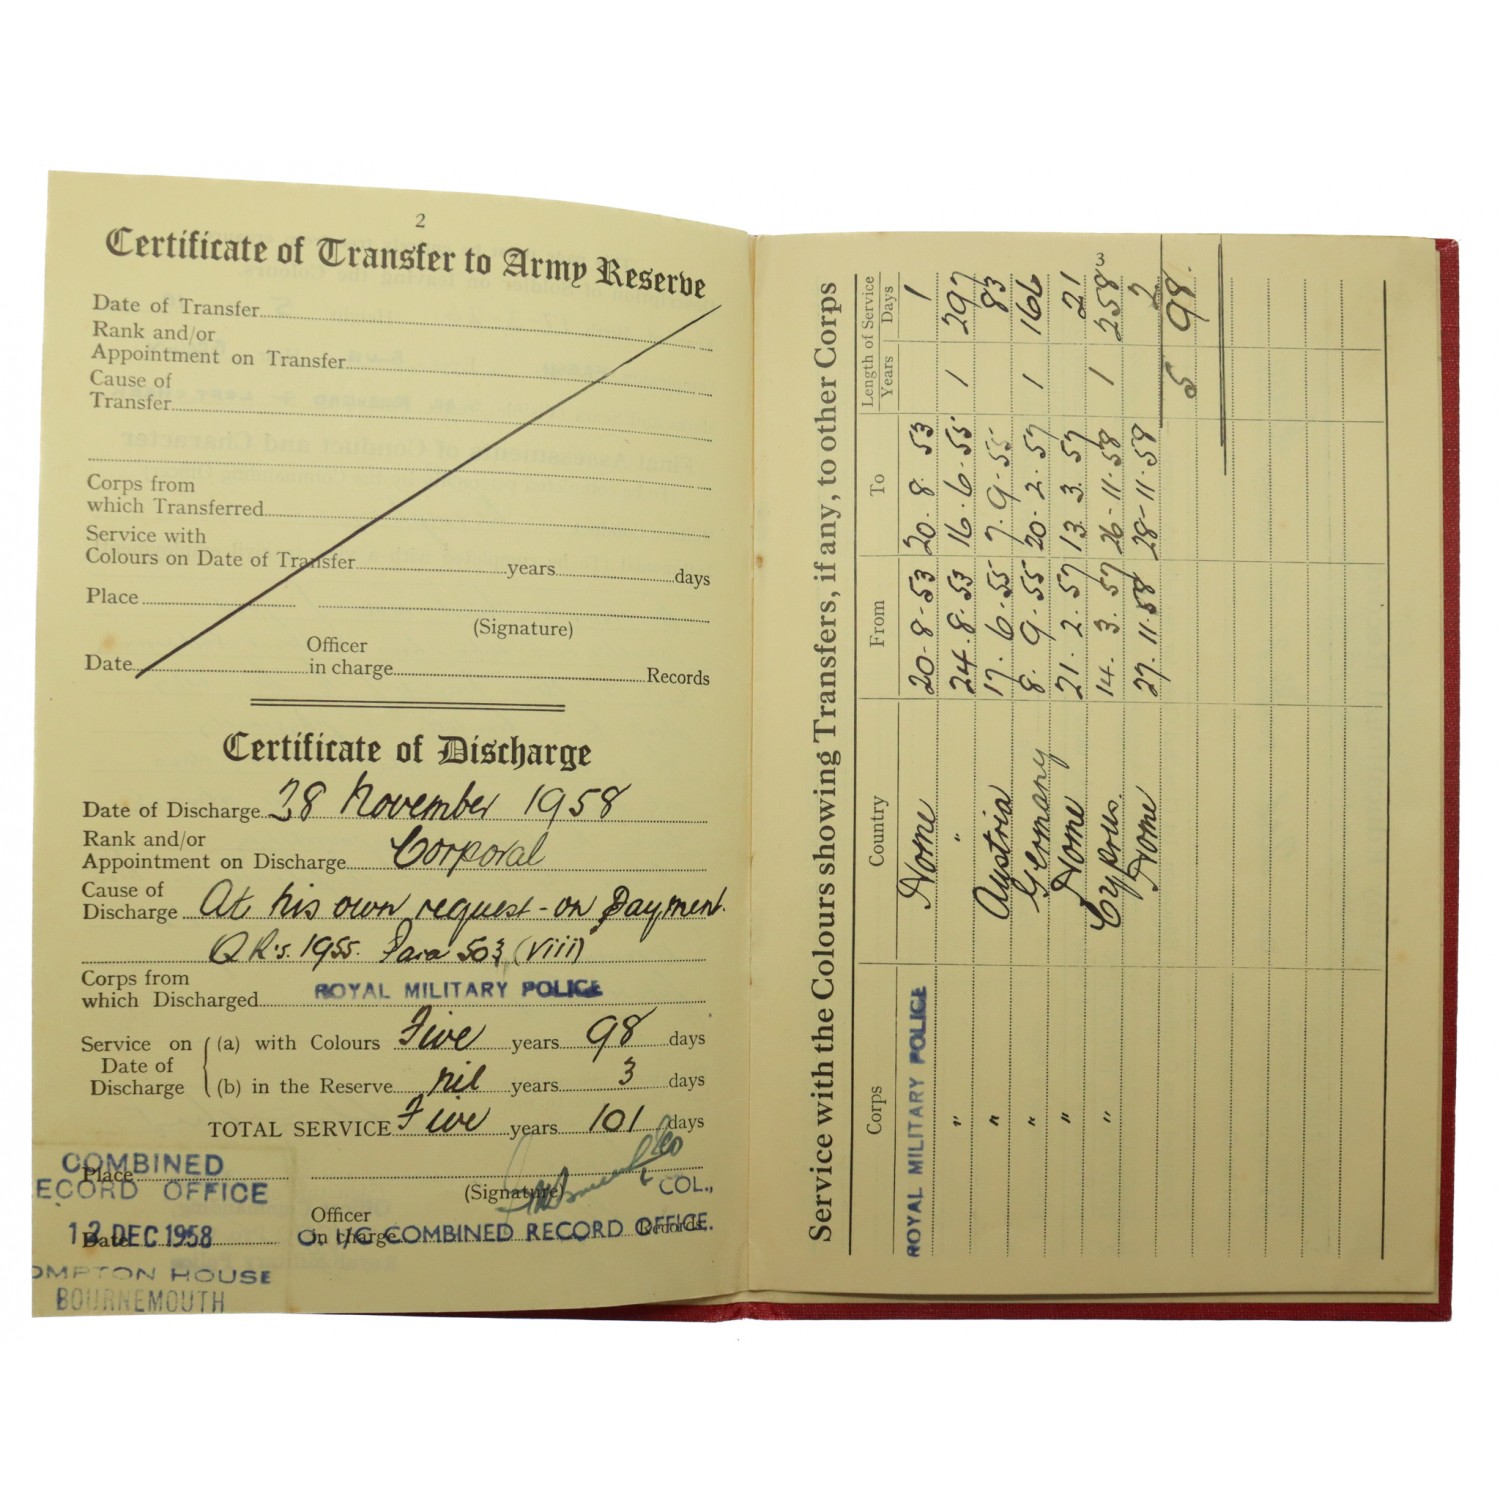 2
Certificate of Transfer to Army Reserve
Date of Transfer
Rank and/or
Appointment on Transfer
Cause of
Transfer
Corps from
which Transferred
Service with
Colours on Date of Transfer years days
Place
(Signature)
Date Officer in charge Records
Certificate of Discharge
Date of Discharge 28 November 1958
Rank and/or
Appointment on Discharge Corporal
Cause of
Discharge At his own request - on payment.
QR's. 1955. Para 503 (viii)
Corps from
which Discharged ROYAL MILITARY POLICE
Service on Date of Discharge (a) with Colours Five years 98 days
(b) in the Reserve nil years 3 days
TOTAL SERVICE Five years 101 days
Place
COMBINED
ECORD OFFICE
(Signature) COL.,
Date 12 DEC 1958
Officer in charge Records
O. I/C COMBINED RECORD OFFICE.
OMPTON HOUSE
BOURNEMOUTH
3
Service with the Colours showing Transfers, if any, to other Corps
Corps Country From To Length of Service
Years Days
ROYAL MILITARY POLICE Home 20-8-53 20.8.53 1
" " 24.8.53 16.6.55 1 297
" Austria 17.6.55 7.9.55 83
" Germany 8.9.55 20.2.57 1 166
" Home 21.2.57 13.3.57 21
" Cyprus. 14.3.57 26-11-58 1 258
Home 27.11.58 28-11-58 2
5 98.